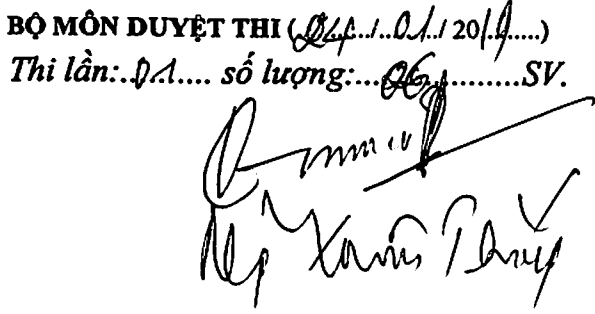 BỘ MÔN DUYỆT THI (04/01/2019)
Thi lần:..01.... số lượng:....06..........SV.
Xuân Thủy